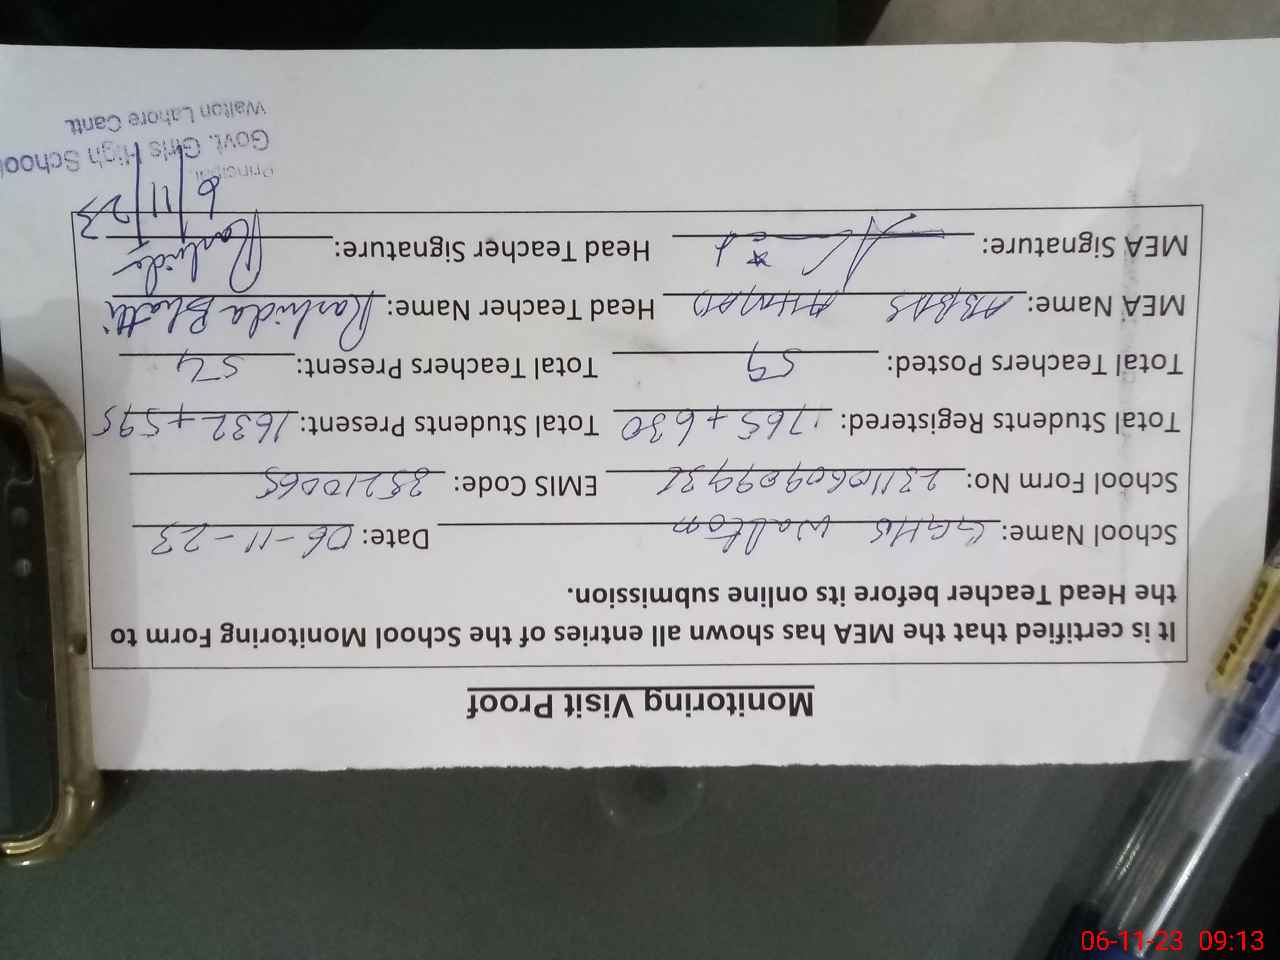 Monitoring Visit Proof
It is certified that the MEA has shown all entries of the School Monitoring Form to
the Head Teacher before its online submission.
School Name: GGHS Walton Date: 06-11-23
School Form No: EMIS Code: 35210065
Total Students Registered: 1765 + 630 Total Students Present: 1632 + 595
Total Teachers Posted: 59 Total Teachers Present: 54
MEA Name: ABBAS AHMAD Head Teacher Name: Rashida Bhatti
MEA Signature: Head Teacher Signature: Rashida
6/11/23
Principal
Govt. Girls High School
Walton Lahore Cantt.
PIANO
06-11-23 09:13